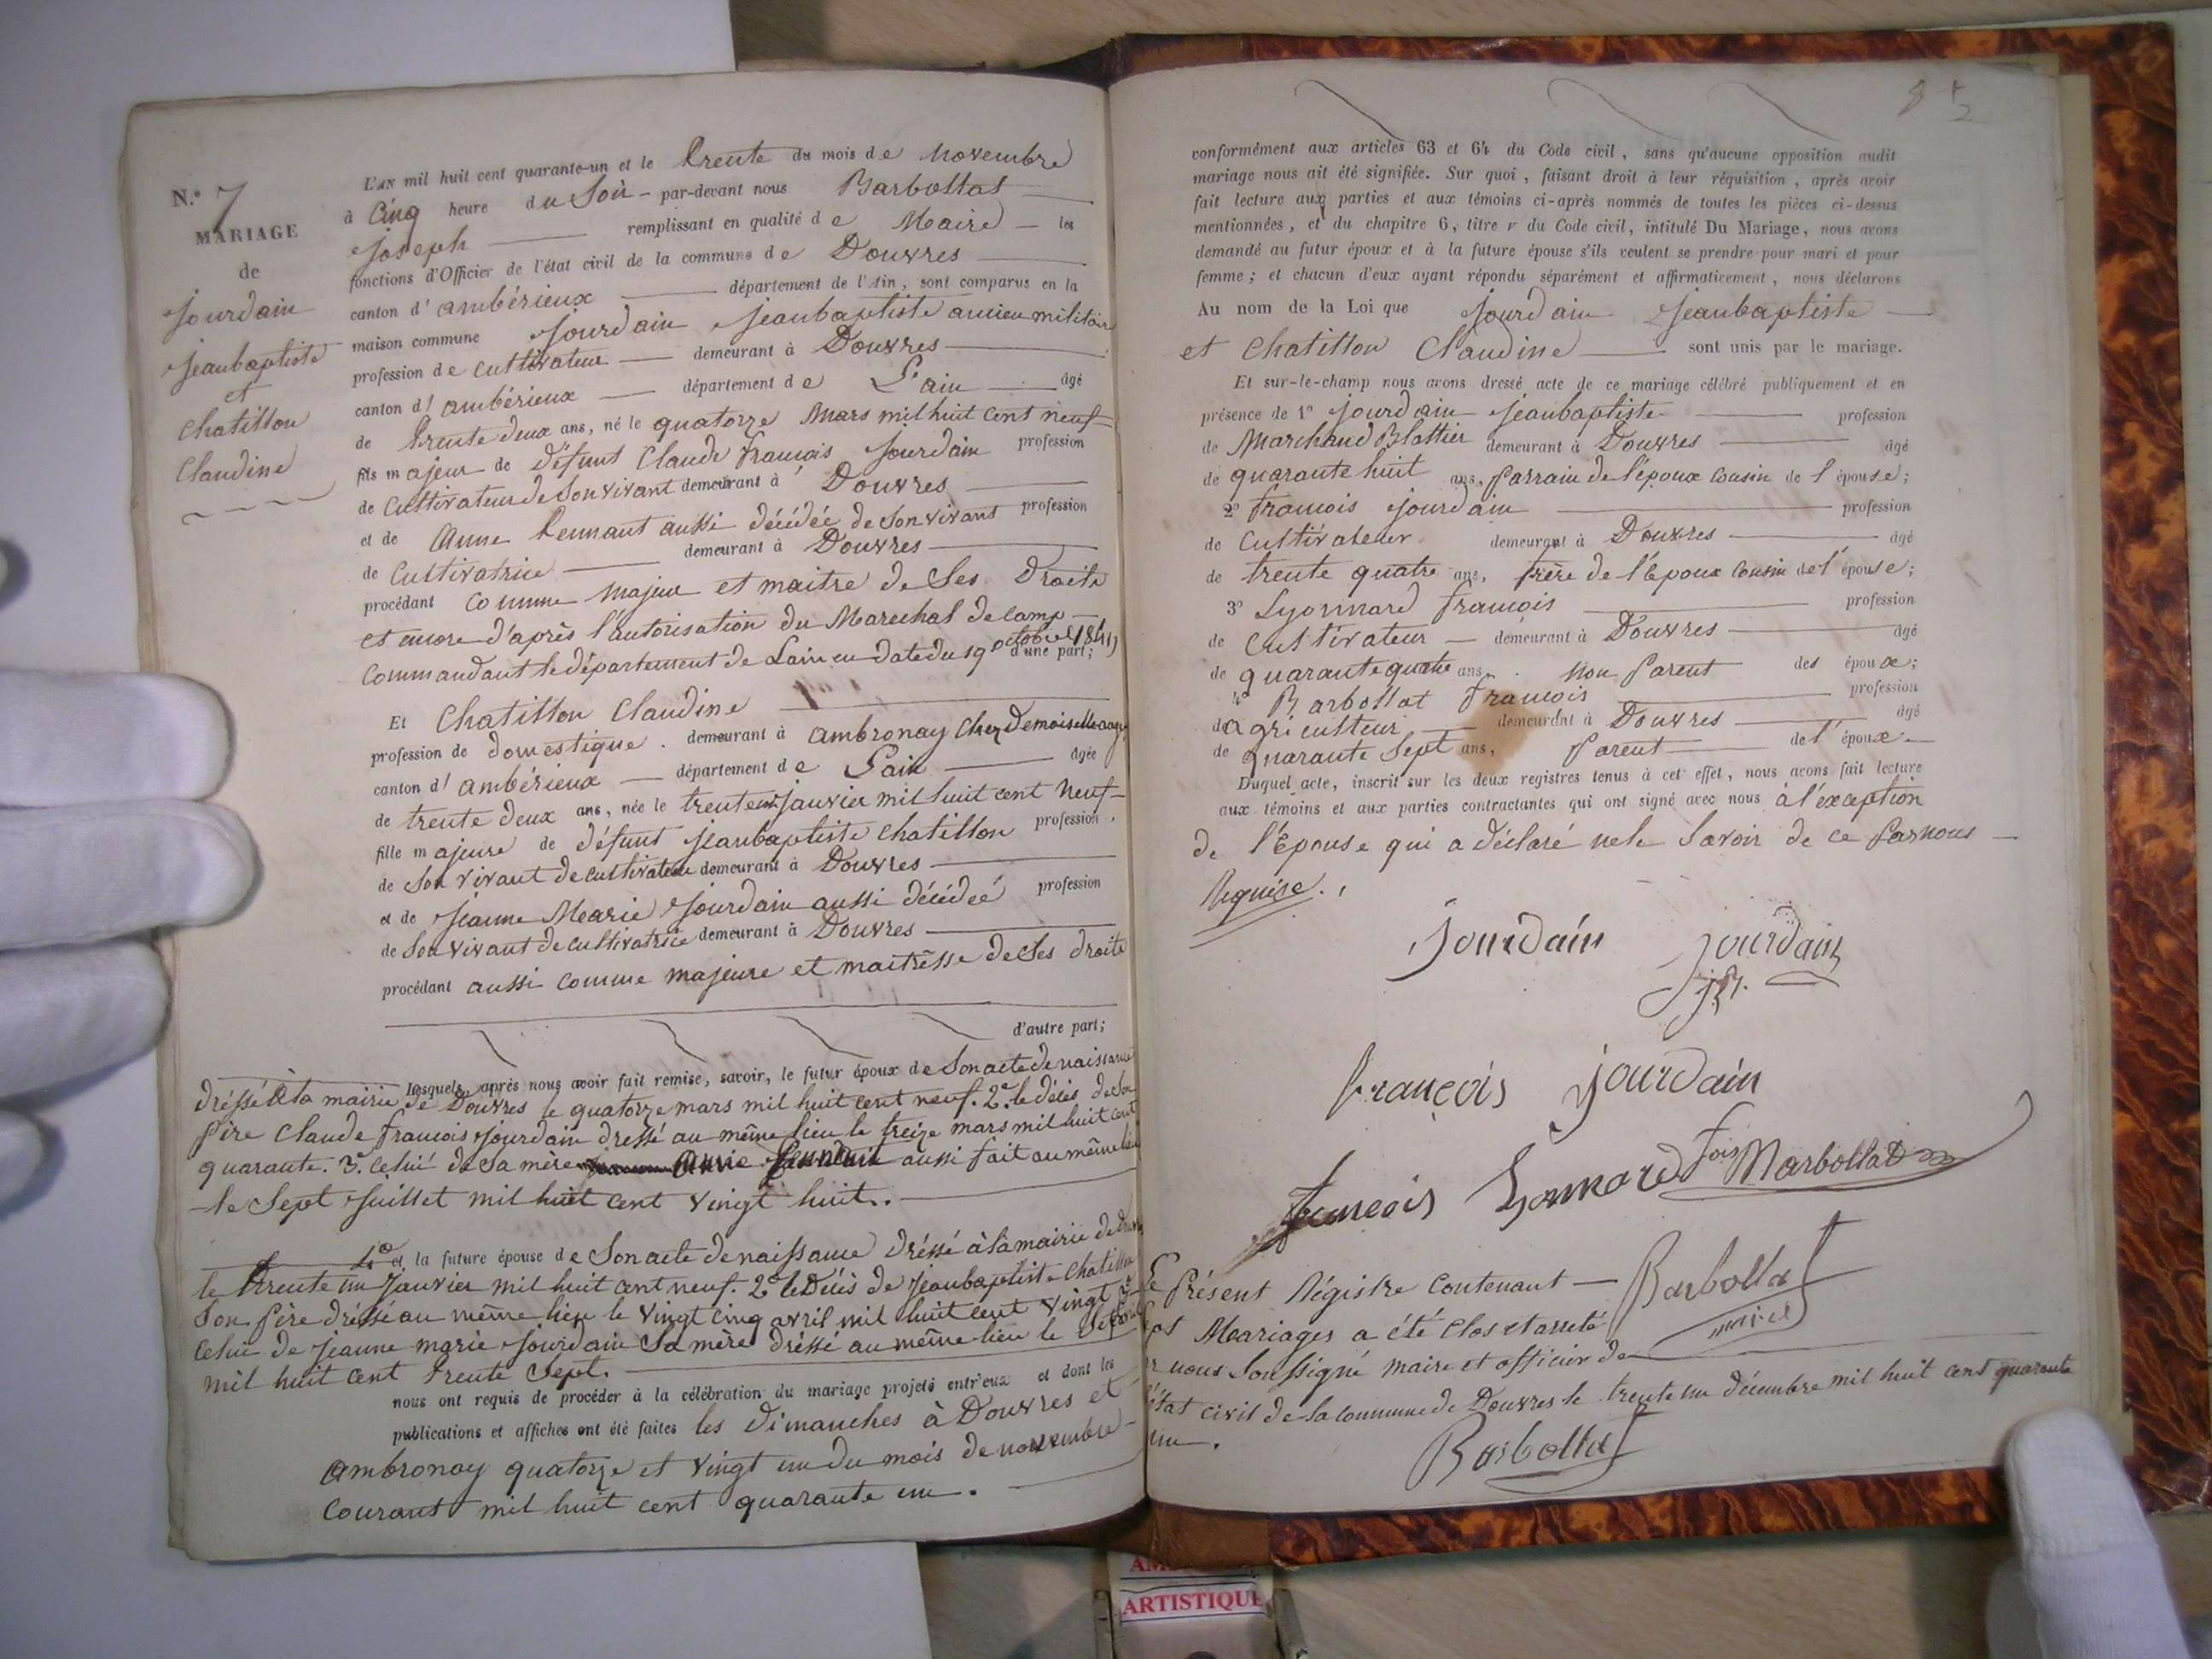 N.° 7
MARIAGE
de
Jourdain
Jeanbaptiste
et
Chatillon
Claudine
L'AN mil huit cent quarante-un et le trente du mois de Novembre
à Cinq heure du Soir - par-devant nous Barbollat
Joseph remplissant en qualité de Maire les
fonctions d'Officier de l'état civil de la commune de Douvres
canton d'ambérieux département de l'Ain, sont comparus en la
maison commune Jourdain Jeanbaptiste ancien militaire
profession de cultivateur demeurant à Douvres
canton d'ambérieux département de L'ain âgé
de trente deux ans, né le quatorze Mars mil huit cent neuf
fils majeur de défunt Claude François Jourdain profession
de Cultivateur de Son vivant demeurant à Douvres
et de Anne tennant aussi décédée de Son vivant profession
de Cultivatrice demeurant à Douvres
procédant comme majeur et maitre de Ses Droits
et encore d'après l'autorisation du Marechal de camp
Commandant le département de Lain en date du 19 octobre 1841 d'une part;
Et Chatillon Claudine
profession de domestique. demeurant à ambronay chez Demoiselle
canton d'ambérieux département de L'ain âgée
de trente deux ans, née le trente un Janvier mil huit cent Neuf
fille majeure de défunt Jeanbaptiste Chatillon profession
de Son vivant de cultivateur demeurant à Douvres
et de Jeanne Marie Jourdain aussi décédée profession
de Son vivant de cultivatrice demeurant à Douvres
procédant aussi comme majeure et maitresse de Ses droits
d'autre part;
lesquels, après nous avoir fait remise, savoir, le futur époux de Son acte de naissance
dréssé à la mairie de Douvres le quatorze mars mil huit cent neuf. 2° le décès de Son
père Claude François Jourdain dressé au même lieu le treize mars mil huit cent
quarante. 3° celui de Sa mère Anne tennant aussi fait au même lieu
le Sept Juillet mil huit cent vingt huit.
1° et la future épouse de Son acte de naissance dréssé à la mairie de
le trente un Janvier mil huit cent neuf. 2° le Décès de Jeanbaptiste Chatillon
Son père dréssé au même lieu le vingt cinq avril mil huit cent vingt 3°
celui de Jeanne marie Jourdain Sa mère dréssé au même lieu le
mil huit cent trente Sept.
nous ont requis de procéder à la célébration du mariage projeté entr'eux et dont les
publications et affiches ont été faites les Dimanches à Douvres et
Ambronay quatorze et vingt un du mois de novembre
Courant mil huit cent quarante un.
conformément aux articles 63 et 64 du Code civil, sans qu'aucune opposition audit
mariage nous ait été signifiée. Sur quoi, faisant droit à leur réquisition, après avoir
fait lecture aux parties et aux témoins ci-après nommés de toutes les pièces ci-dessus
mentionnées, et du chapitre 6, titre v du Code civil, intitulé Du Mariage, nous avons
demandé au futur époux et à la future épouse s'ils veulent se prendre pour mari et pour
femme; et chacun d'eux ayant répondu séparément et affirmativement, nous déclarons
Au nom de la Loi que Jourdain Jeanbaptiste
et Chatillon Claudine sont unis par le mariage.
Et sur-le-champ nous avons dressé acte de ce mariage célébré publiquement et en
présence de 1° Jourdain Jeanbaptiste profession
de Marchand Blattier demeurant à Douvres âgé
de quarante huit ans, Parrain de l'époux Cousin de l'épouse;
2° François Jourdain profession
de Cultivateur demeurant à Douvres âgé
de trente quatre ans, frère de l'époux Cousin de l'épouse;
3° Lyonnard François profession
de Cultivateur demeurant à Douvres âgé
de quarante quatre ans, Non Parent des époux;
4° Barbollat François profession
d'agriculteur demeurant à Douvres âgé
de quarante Sept ans, Parent de l'époux
Duquel acte, inscrit sur les deux registres tenus à cet effet, nous avons fait lecture
aux témoins et aux parties contractantes qui ont signé avec nous à l'exception
de l'Epouse qui a déclaré ne le Savoir de ce par nous
Requise.
Jourdain Jourdain
François Jourdain
François Lonnard fois Barbollat
Barbollat
maire
Le Présent Régistre Contenant
Mariages a été clos et arreté
nous Soussigné maire et officier de
état civil de la commune de Douvres le trente un décembre mil huit cent quarante
un.
Barbollat
ARTISTIQUE